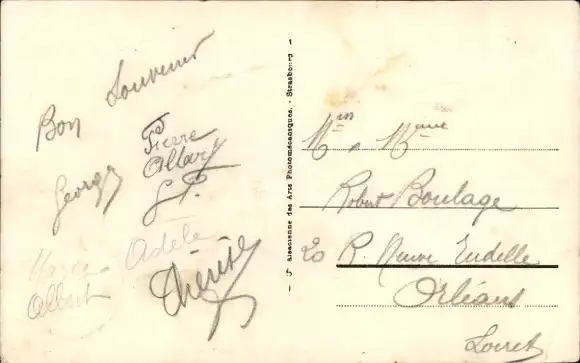 Bon Souvenir
Pierre
Albary
Georges
G. P.
Adèle
Marie
Albert
Thérèse
— S Alsacienne des Arts Photomécaniques. - Strasbourg 1
Mr, Mme
Robert Boulage
20 R. Neuve Tudelle
Orléans
Loiret